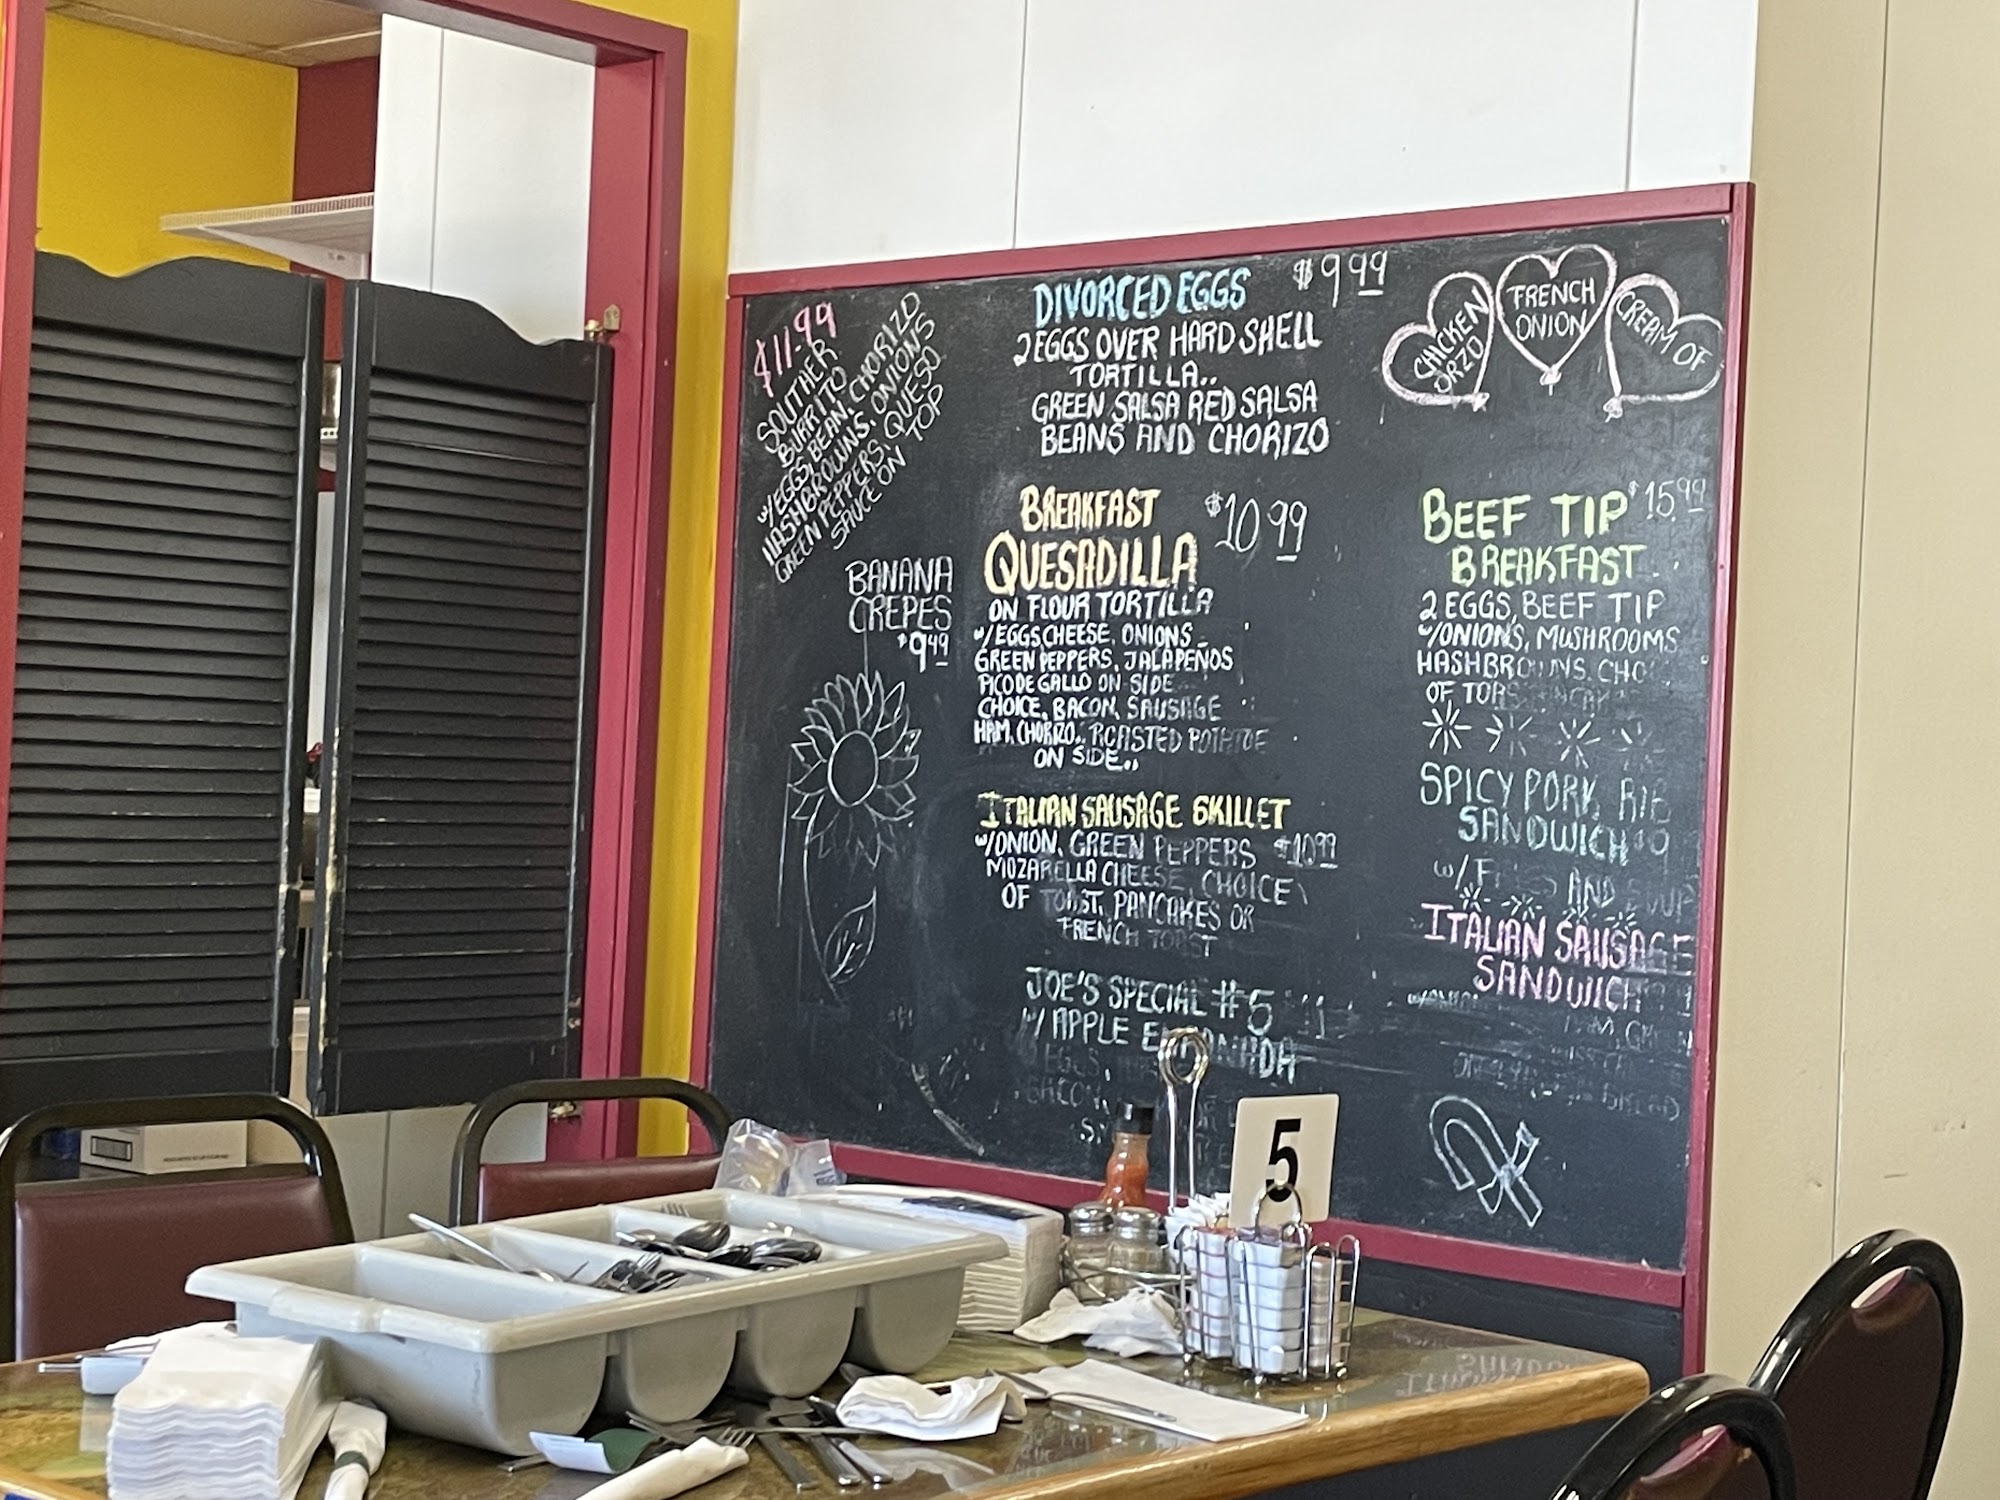 $11.99
SOUTHER
BURRITO
W/EGGS, BEAN, CHORIZO
HASHBROWNS, ONIONS
GREEN PEPPERS, QUESO
SAUCE ON TOP
BANANA
CREPES
$9.49
DIVORCED EGGS $9.99
2 EGGS OVER HARD SHELL
TORTILLA..
GREEN SALSA RED SALSA
BEANS AND CHORIZO
BREAKFAST $10.99
QUESADILLA
ON FLOUR TORTILLA
W/EGGS, CHEESE, ONIONS
GREEN PEPPERS, JALAPEÑOS
PICO DE GALLO ON SIDE
CHOICE, BACON, SAUSAGE
HAM, CHORIZO.. ROASTED POTATOE
ON SIDE..
ITALIAN SAUSAGE SKILLET
W/ONION, GREEN PEPPERS $10.99
MOZARELLA CHEESE, CHOICE
OF TOAST, PANCAKES OR
FRENCH TOAST
JOE'S SPECIAL #5
W/ APPLE EMPANADA
EGGS
BACON,
CHICKEN
ORZO
FRENCH
ONION
CREAM OF
BEEF TIP $15.99
BREAKFAST
2 EGGS, BEEF TIP
W/ONIONS, MUSHROOMS
HASHBROWNS, CHO
OF
SPICY PORK RIB
SANDWICH $9
W/ FRIES AND SOUP
ITALIAN SAUSAGE
SANDWICH
BREAD
5